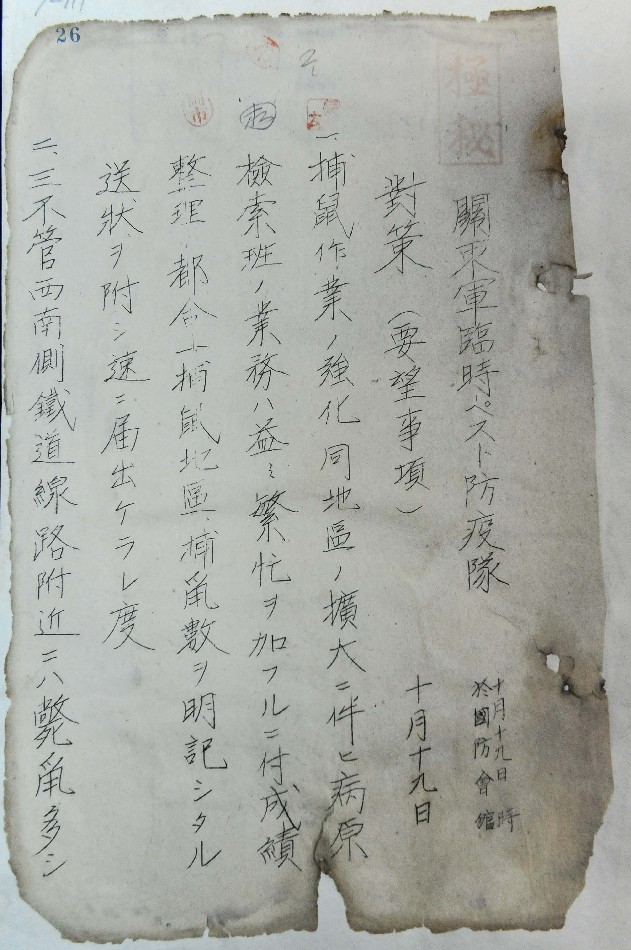 26
極秘
關東軍臨時ペスト防疫隊
十月十九日 時
於國防會館
對策(要望事項)
十月十九日
一、捕鼠作業ノ強化同地區ノ擴大ニ伴ヒ病原
檢索班ノ業務ハ益々繁忙ヲ加フルニ付成績
整理ノ都合上捕鼠地區、捕鼠數ヲ明記シタル
送狀ヲ附シ速ニ届出ケラレ度
二、三不管西南側鐵道線路附近ニハ斃鼠多シ